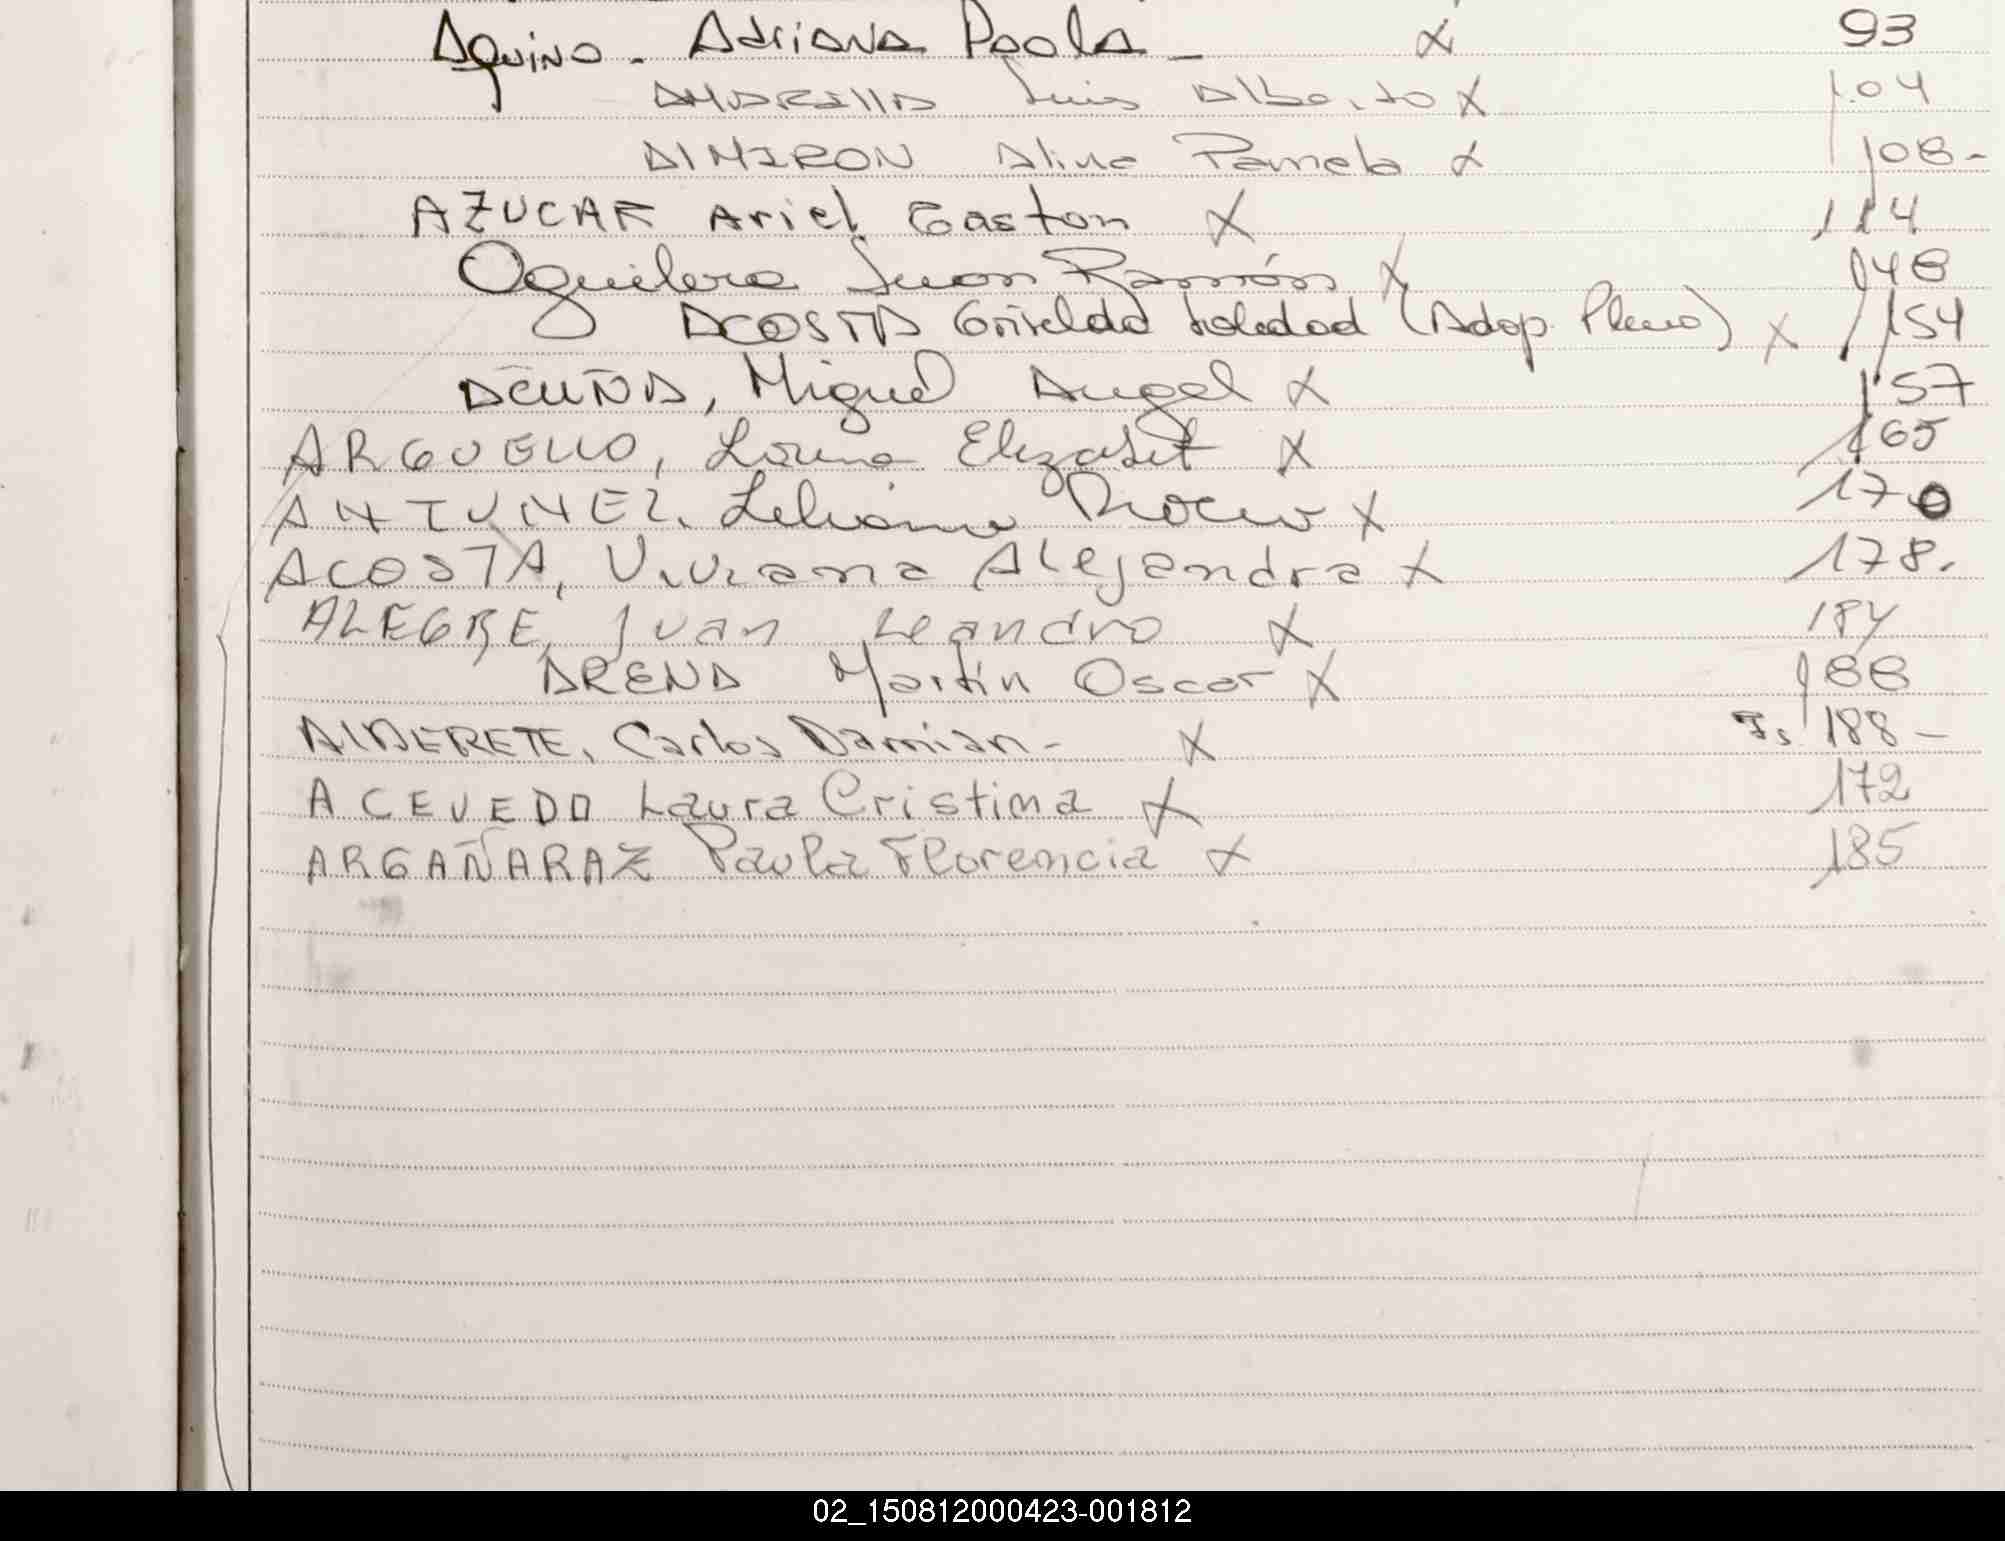 Aquino - Adriana Paola - X 93
AMARILLA Luis Alberto X 104
ALMIRON Aline Pamela X 108-
AZUCAR Ariel Gaston X 114
Aguilera Juan Ramón X 148
ACOSTA Griselda Soledad (Adop. Plena) X 154
ACUÑA, Miguel Angel X 157
ARGUELLO, Lorena Elizabet X 165
ANTUNEZ, Liliana Rocio X 170
ACOSTA, Viviana Alejandra X 178.
ALEGRE, Juan Leandro X 184
ARENA Martín Oscar X 188
ALDERETE, Carlos Damian - X Fs 188 -
ACEVEDO Laura Cristina X 172
ARGAÑARAZ Paula Florencia X 185
02_150812000423-001812